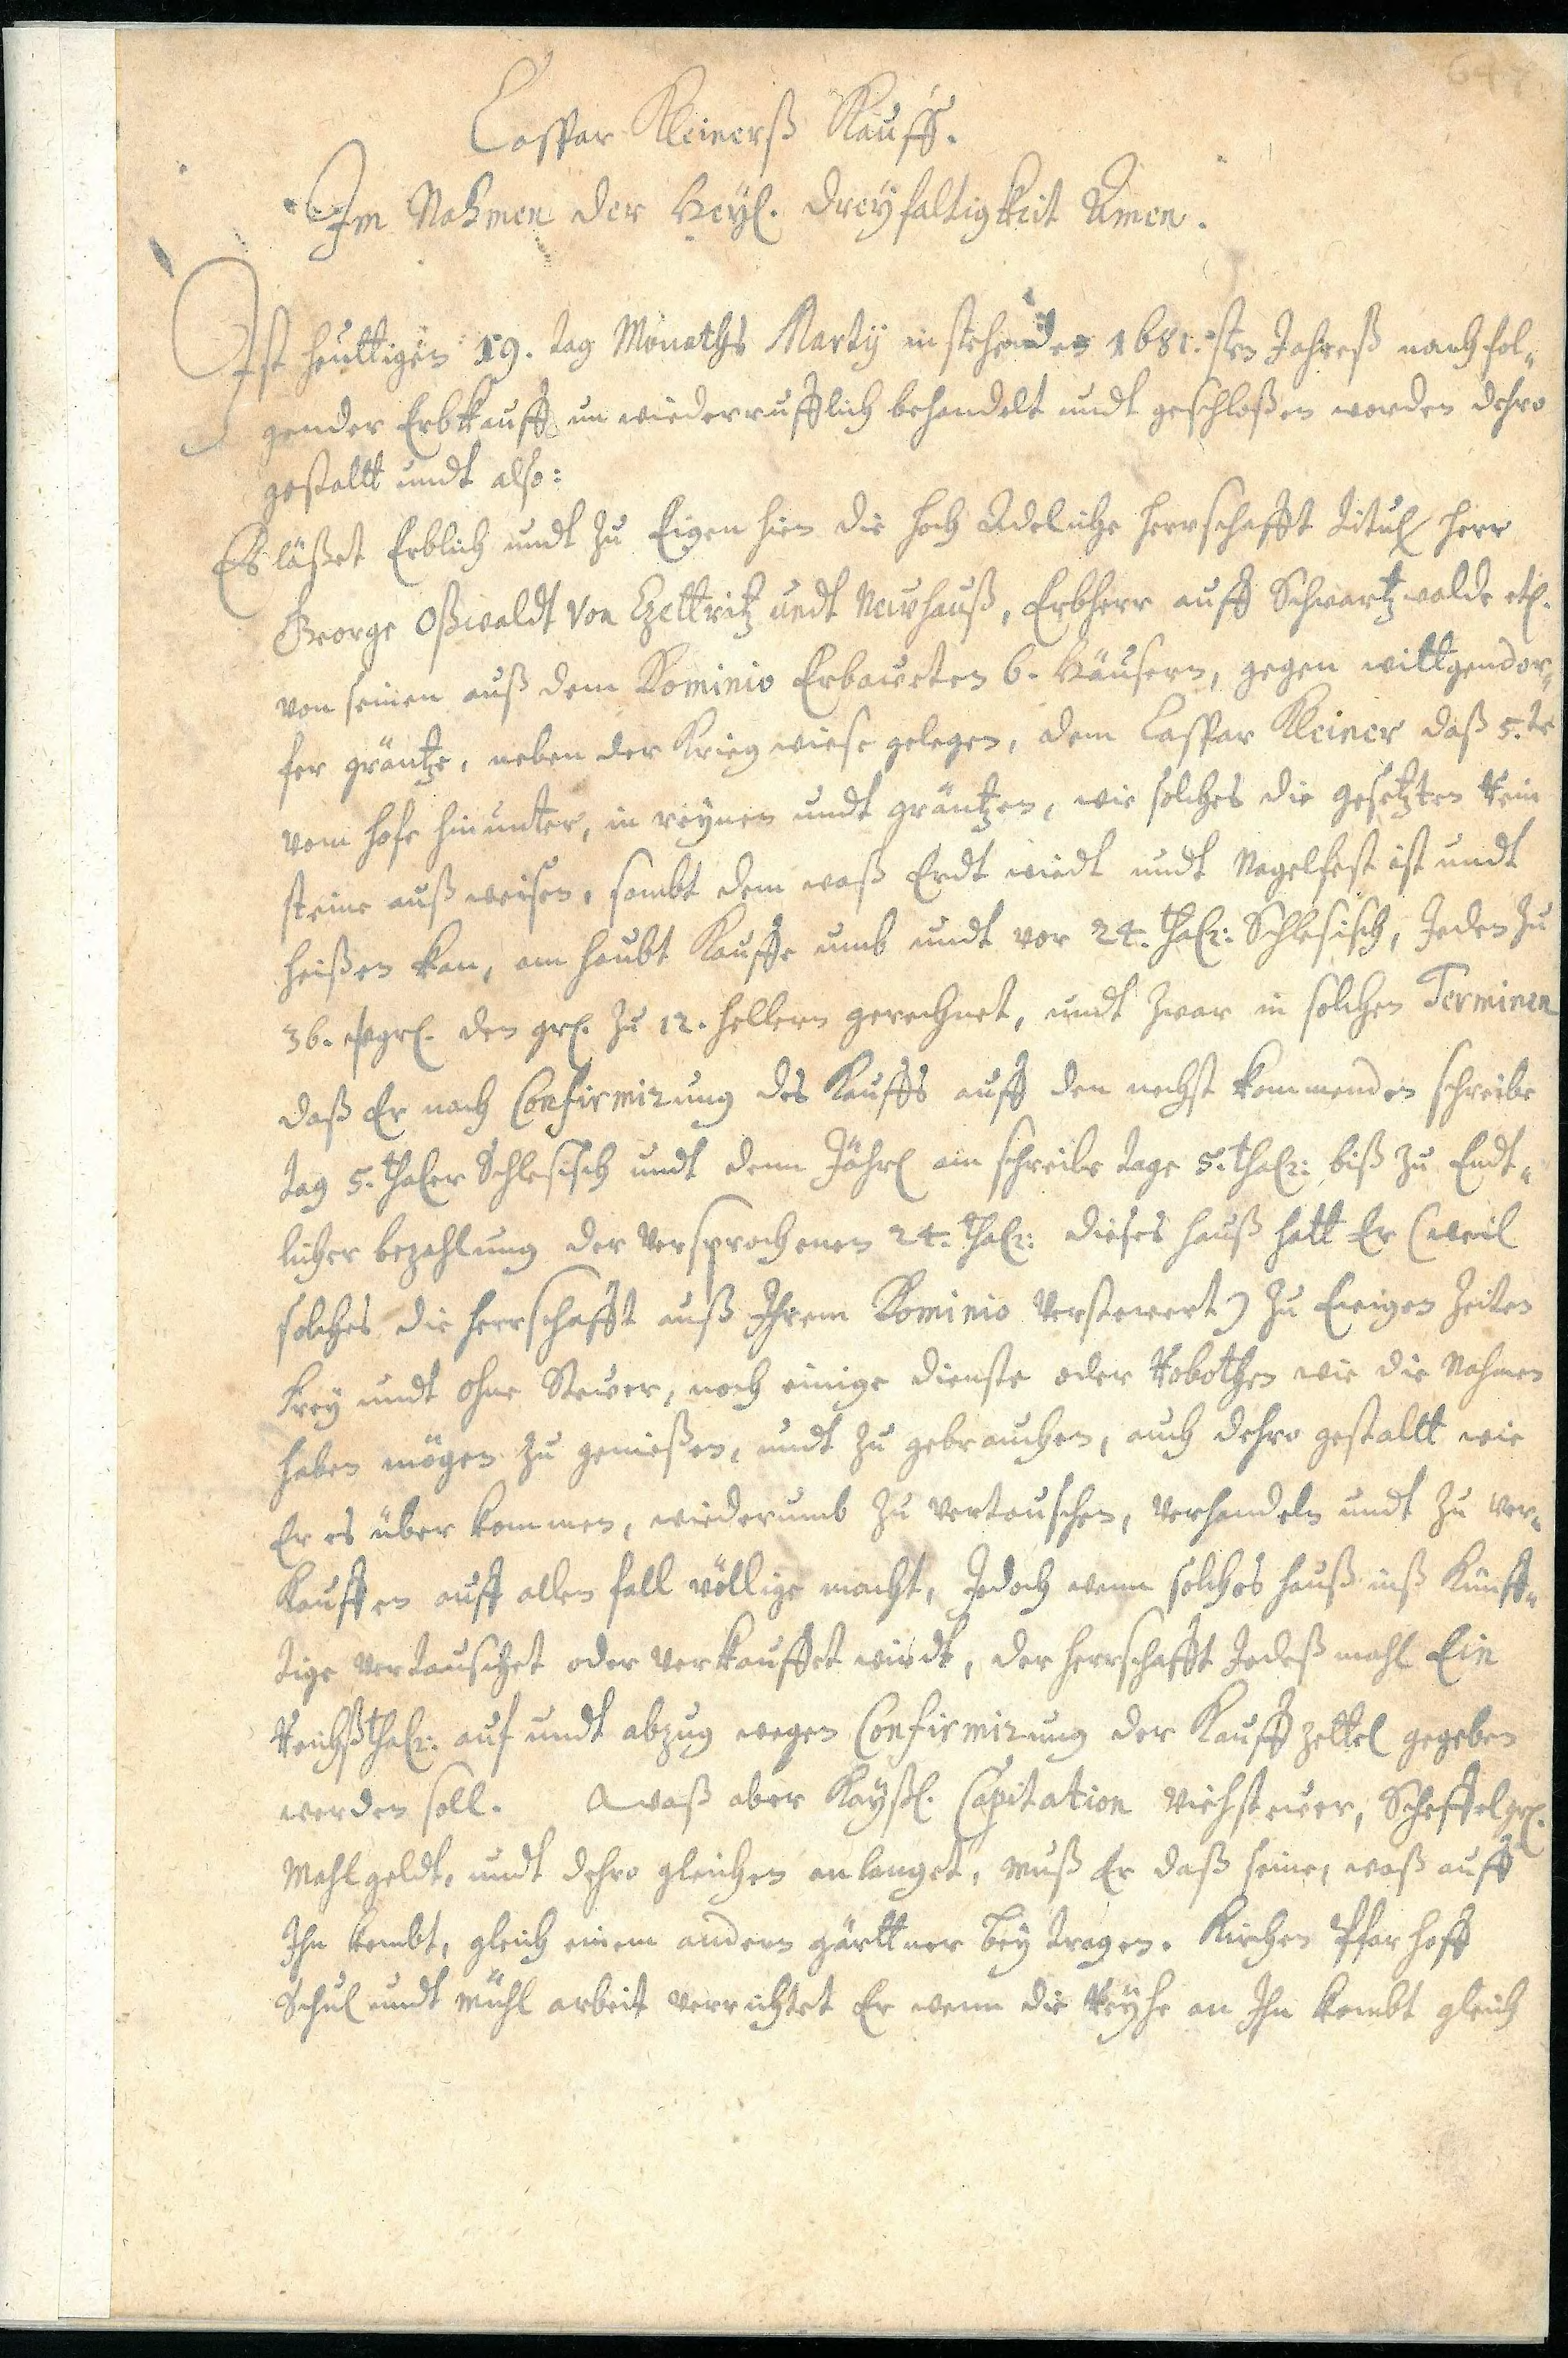 647
Casspar Kleinerß Kauff.
Im Nahmen der Heyl. Dreyfaltigkeit Amen.
Ist heuttigen 19. tag Monaths Marty instehenden 1681.sten Jahreß nachfol„
gender Erbkauff unwiederrufflich behandelt undt geschloßen worden dehro
gestaltt undt also:
Es läßet Erblich undt zu Eigen hien die hoch Adeliche herrschafft Titul herr
George Oßwaldt Von Czettritz undt Newhauß, Erbherr auff Schwartzwalde etc.
von seinen auß dem Dominio Erbaweten 6. Häusern, gegen wittgendor„
fer gräntze, neben der Krieg wiese gelegen, dem Casspar Kleiner daß 5.te
vom hofe hinunter, in reynen undt gräntzen, wie solches die gesetzten Rein
steine außweisen, sambt dem waß Erdt wiedt undt Nagelfest ist undt
heißen kan, am haubt Kauffe umb undt vor 24. thalr: Schlesisch, Jeden zu
36. wgrl. den grl. zu 12. hellern gerechnet, undt zwar in solchen Terminen
daß Er nach Confirmirung des Kauffs auff den nechst kommenden schreibe
tag 5. thaler Schlesisch undt denn Jährl am schreibe tage 5. thalr: biß zu Endt„
licher bezahlung der versprochenen 24. thalr: dieses hauß hatt Er (weil
solches die herrschafft auß Ihrem Dominio Verstewert) zu Ewigen Zeiten
frey undt ohne Stewer, noch einige dienste oder Robothen wie die Nahmen
haben mögen zu genießen, undt zu gebrauchen, auch dehro gestaltt wie
Er es über kommen, wiederumb zu vertauschen, verhandeln undt zu ver„
Kauffen auff allen fall völlige macht, Jedoch wenn solches hauß inß Künff„
tige vertauschet oder verkauffet wirdt, der herrschafft Jedeß mahl Ein
Reichßthalr: auf undt abzug wegen Confirmirung der Kauffzettel gegeben
werden soll. Waß aber Kayßl. Capitation Viehstewer, Scheffelgrl.
Mahlgeldt, undt dehro gleichen anlanget, muß Er daß seine, waß auff
Ihn kombt, gleich einem andern gärttner beytragen. Kirchen Pfarhoff
Schul undt mühl arbeit verrichtet Er wenn die Reyhe an Ihn kombt gleich